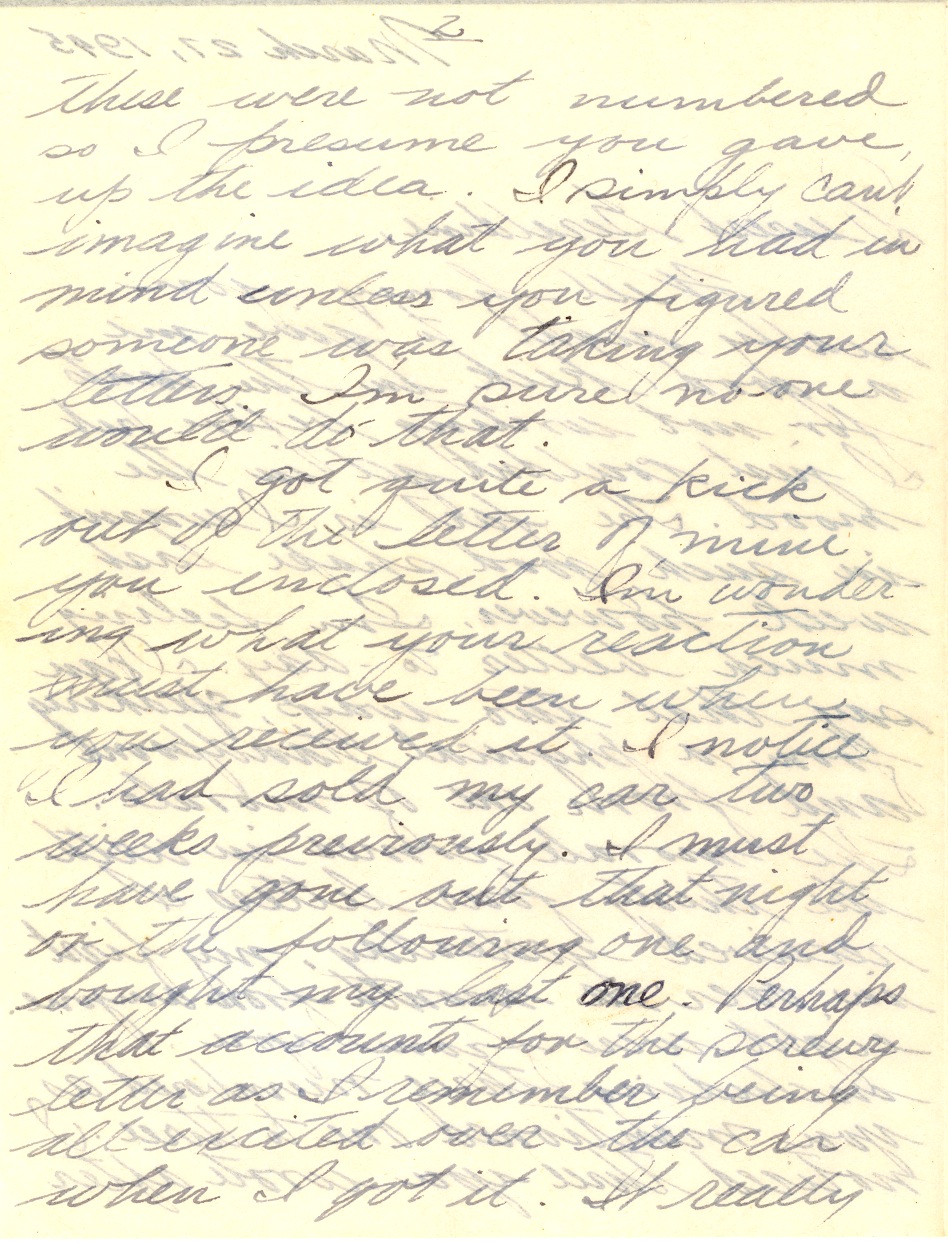 2
these were not numbered
so I presume you gave,
up the idea. I simply can't
imagine what you had in
mind unless you figured
someone was taking your
letters. I'm sure no-one
would do that.
I got quite a kick
out of the letter of mine.
you enclosed. I'm wonder-
ing what your reaction
must have been when
you received it. I notice
I had sold my car two
weeks previously. I must
have gone out that night
or the following one and
bought my last one. Perhaps
that accounts for the screwy
letter as I remember being
all excited over the car
when I got it. It really
March 27, 1945